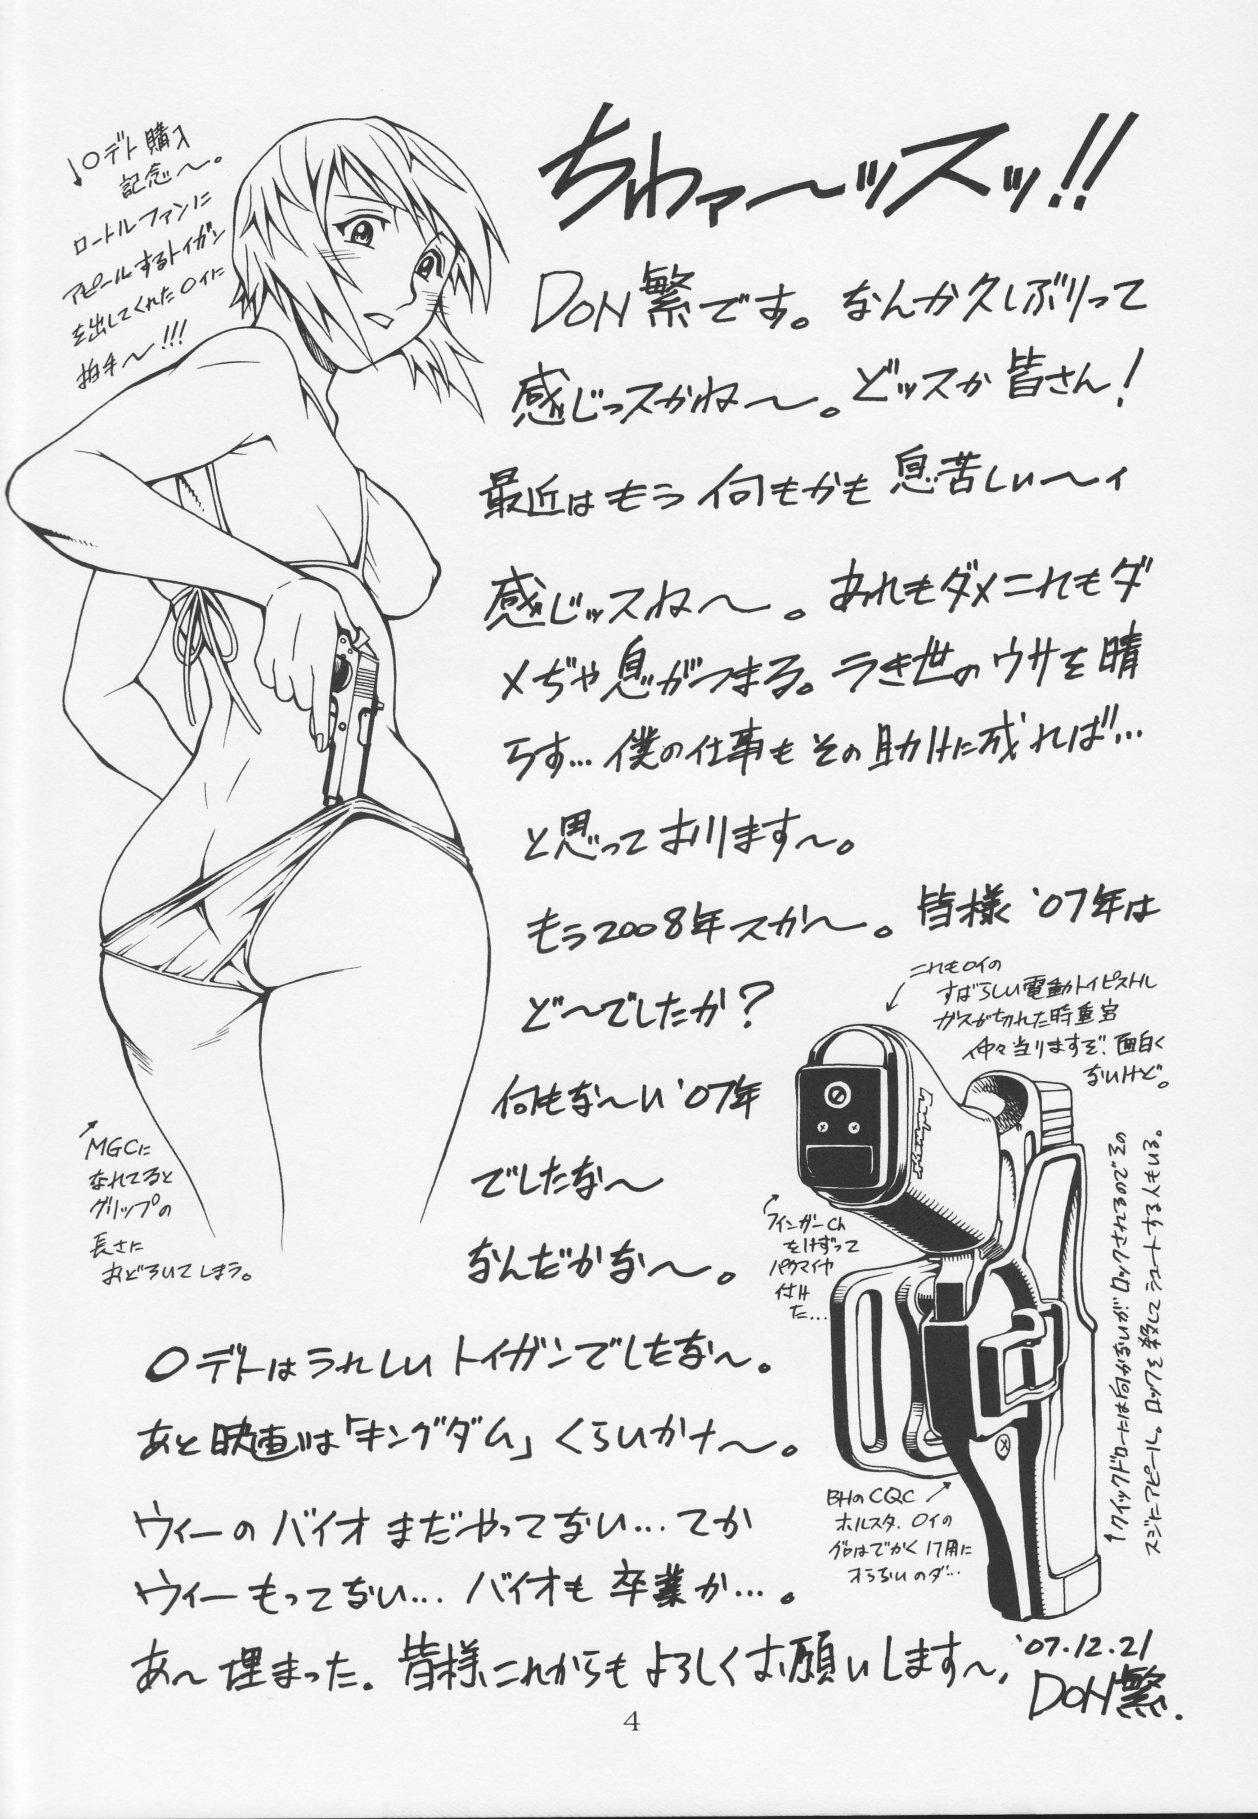 ちわァ〜ッスッ!!
DON繁です。なんか久しぶりって
感じっスかね〜。どッスか皆さん!
最近はもう何もかも息苦しい〜ィ
感じッスね〜。あれもダメこれもダ
メぢゃ息がつまる。うき世のウサを晴
らす…僕の仕事もその助けに成れば…
と思っております〜。
もう2008年スか〜。皆様'07年は
ど〜でしたか?
何もな〜い'07年
でしたな〜
なんだかな〜。
〇デトはうれしいトイガンでしたな〜。
あと映画は「キングダム」くらいかナ〜。
ウィーのバイオまだやってない…てか
ウィーもってない…バイオも卒業か…。
あ〜埋まった。皆様これからもよろしくお願いします〜。
'07.12.21
DON繁.
↓〇デト購入
記念〜。
ロートルファンに
アピールするトイガン
を出してくれた〇イに
拍手〜!!!
MGCに
なれてると
グリップの
長さに
おどろいてしまう。
これも〇イの
すばらしい電動トイピストル
ガスが切れた時重宝
仲々当りますぞ、面白く
ないけど。
フィンガーch
をけずって
パクマイヤ
付けた…
BHのCQC
ホルスタ、〇イの
グロはでかく17用に
オらないのダ…
↑クイックドローには向かないが、ロックされるのでその
スジにアピール。ロックを殺してシュートする人もいる。
4